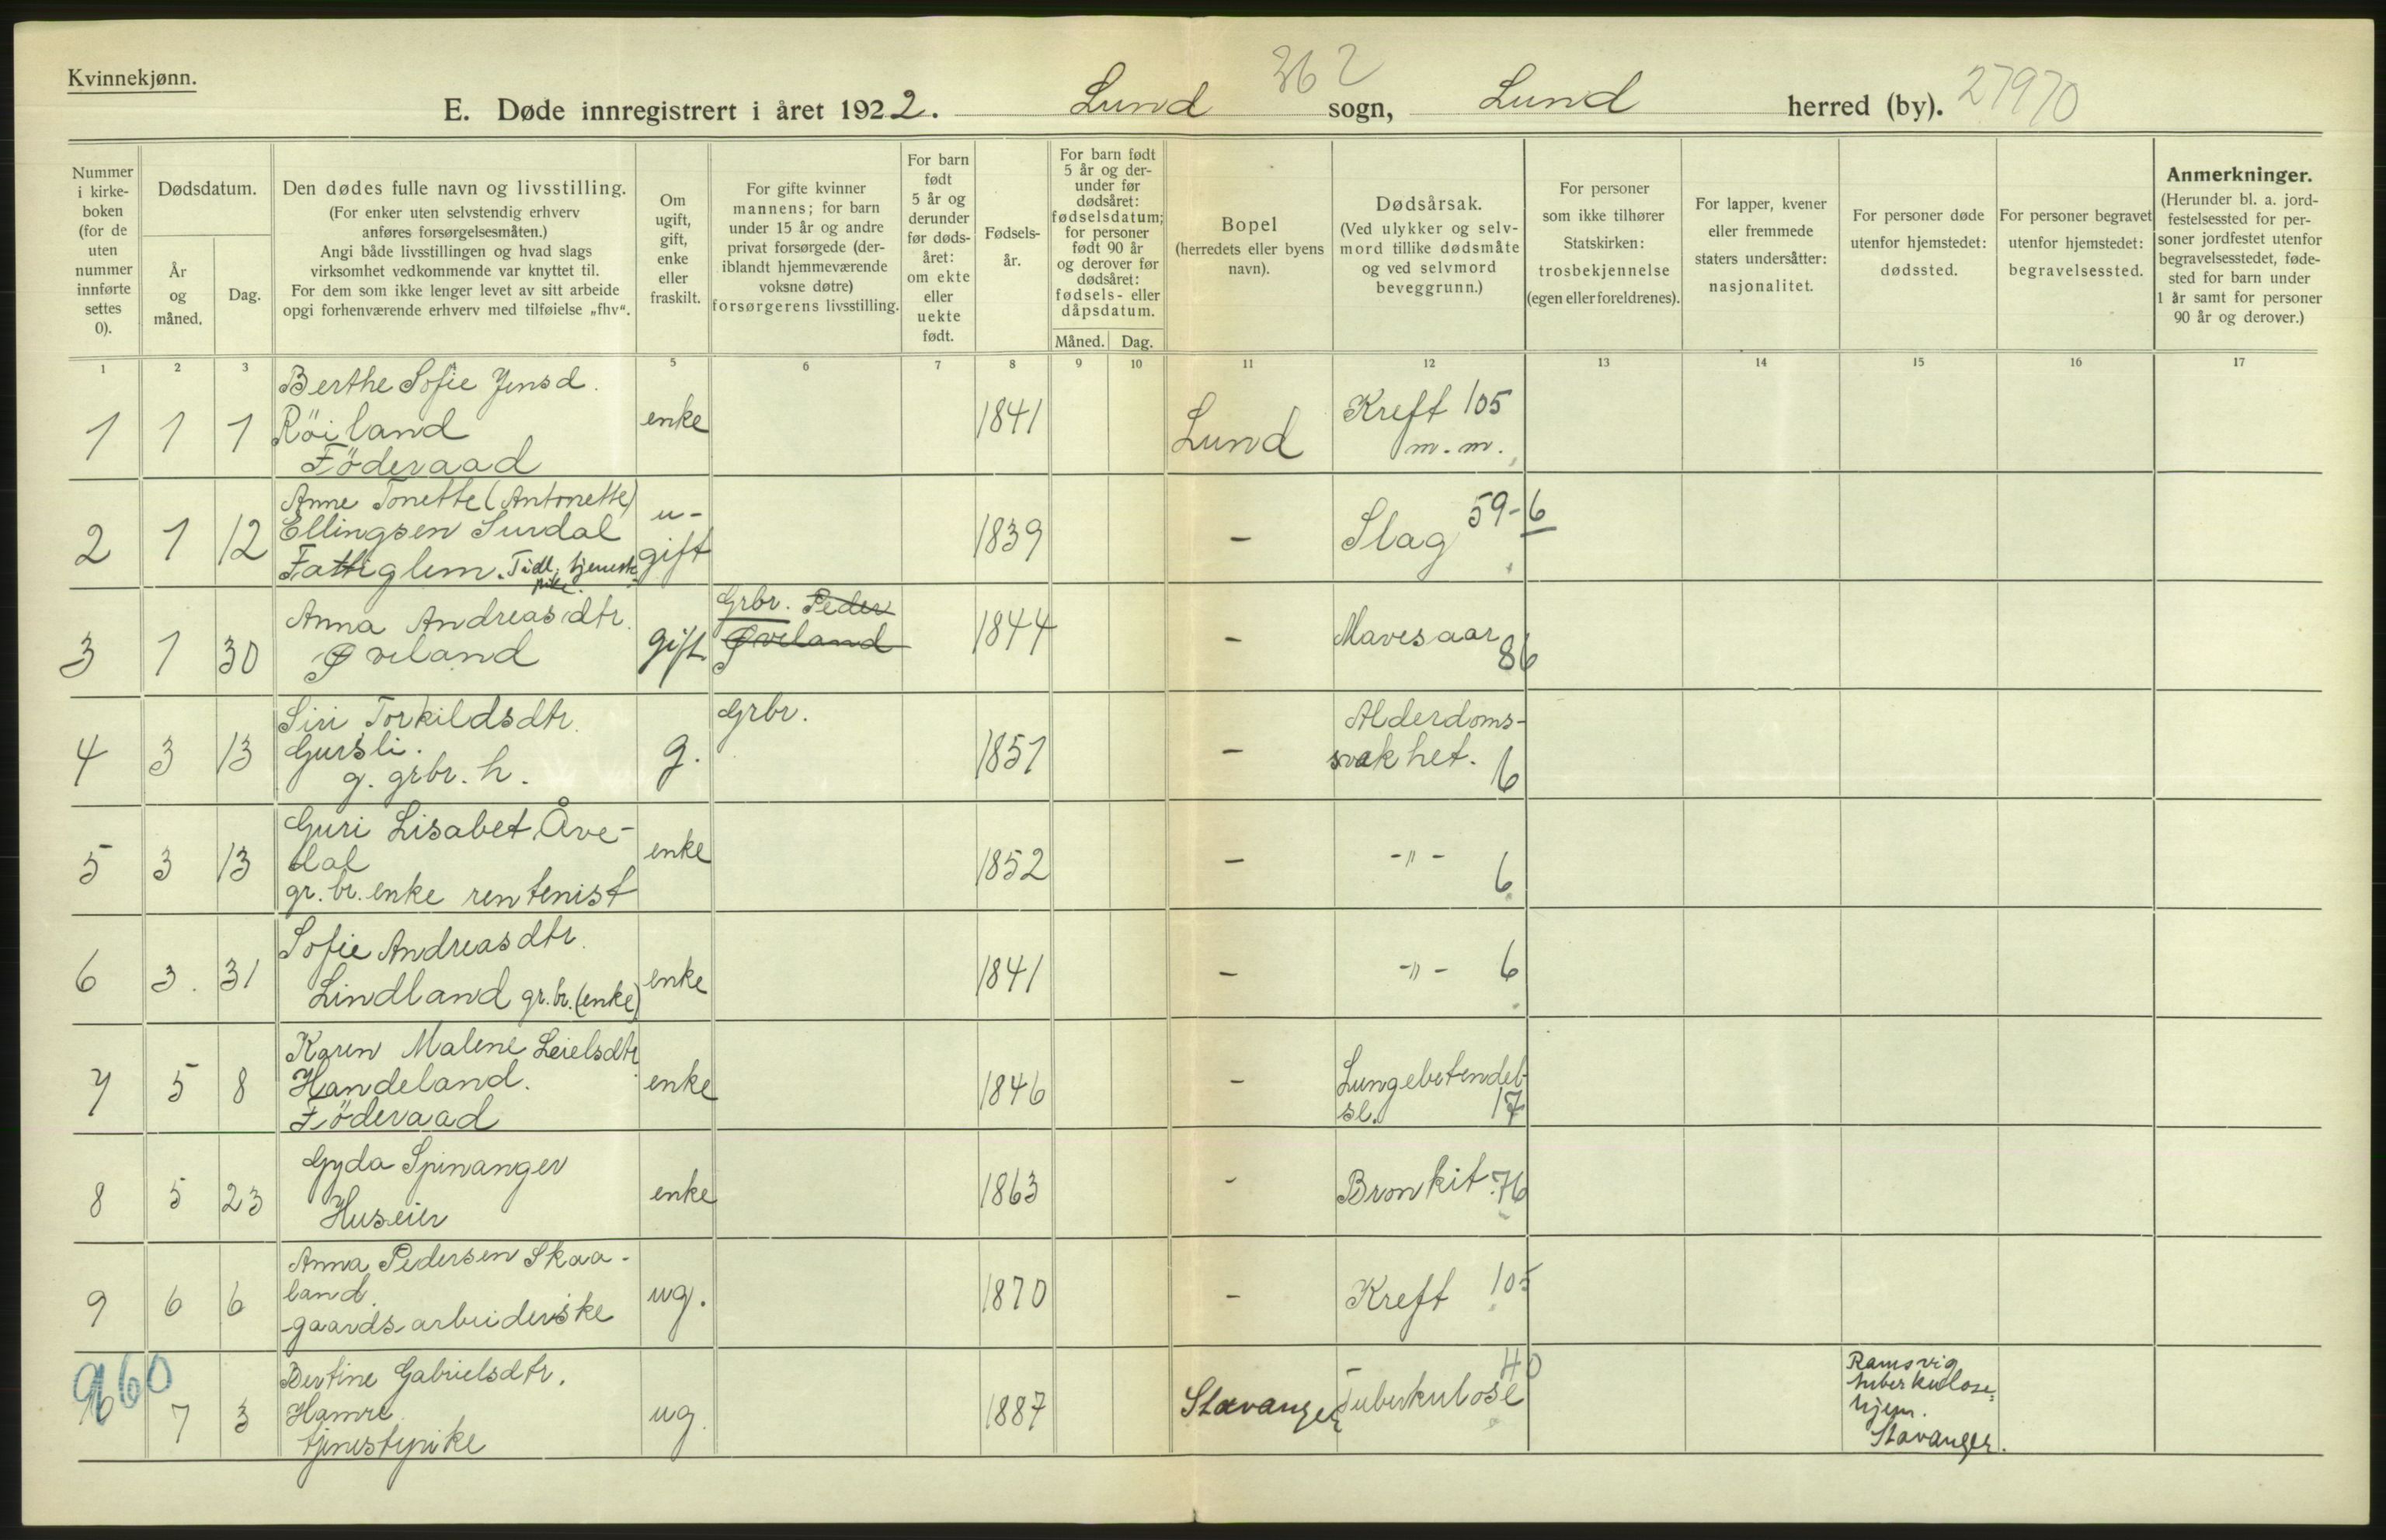 Kvinnekjønn.
362
E. Døde innregistrert i året 1922. Lund sogn, Lund herred (by). 27970
Nummer
i kirke-
boken
(for de
uten
nummer
innførte
settes
0).
Dødsdatum.
År
og
måned.
Dag.
Den dødes fulle navn og livsstilling.
(For enker uten selvstendig erhverv
anføres forsørgelsesmåten.)
Angi både livsstillingen og hvad slags
virksomhet vedkommende var knyttet til.
For dem som ikke lenger levet av sitt arbeide
opgi forhenværende erhverv med tilføielse „fhv“.
Om
ugift,
gift,
enke
eller
fraskilt.
For gifte kvinner
mannens; for barn
under 15 år og andre
privat forsørgede (der-
iblandt hjemmeværende
voksne døtre)
forsørgerens livsstilling.
For barn
født
5 år og
derunder
før døds-
året:
om ekte
eller
uekte
født.
Fødsels-
år.
For barn født
5 år og der-
under før
dødsåret:
fødselsdatum;
for personer
født 90 år
og derover før
dødsåret:
fødsels- eller
dåpsdatum.
Måned. Dag.
Bopel
(herredets eller byens
navn).
Dødsårsak.
(Ved ulykker og selv-
mord tillike dødsmåte
og ved selvmord
beveggrunn.)
For personer
som ikke tilhører
Statskirken:
trosbekjennelse
(egen eller foreldrenes).
For lapper, kvener
eller fremmede
staters undersåtter:
nasjonalitet.
For personer døde
utenfor hjemstedet:
dødssted.
For personer begravet
utenfor hjemstedet:
begravelsessted.
Anmerkninger.
(Herunder bl. a. jord-
festelsessted for per-
soner jordfestet utenfor
begravelsesstedet, føde-
sted for barn under
1 år samt for personer
90 år og derover.)
1 2 3 5 6 7 8 9 10 11 12 13 14 15 16 17
Berthe Sofie Jensd.
1 1 1 Röiland enke 1841 Lund Kreft 105
Föderaad m.m.
Anne Tonette (Antonette)
2 1 12 Ellingsen Surdal u- 1839 - Slag 59-6
Fattiglem. Tidl. tjeneste- gift
pike.
Anna Andreasdtr. Grbr. Peder
3 1 30 Øveland gift Øveland 1844 - Mavesaar 86
Siri Torkildsdtr. Grbr. Alderdoms-
4 3 13 Gursli. g. 1851 - svakhet. 6
g. grbr. h.
Guri Lisabet Åve-
5 3 13 dal enke 1852 - -"- 6
gr. br. enke rentenist
Sofie Andreasdtr.
6 3. 31 Lindland gr. br. (enke) enke 1841 - -"- 6
Karen Malene
7 5 8 Handeland. enke 1846 - Lungebetendel-
Föderaad se. 17
Gyda Spinanger
8 5 23 Huseier enke 1863 - Bronkit. 76
Anna Pedersen Skaa-
9 6 6 land. ug. 1870 - Kreft 105
gaardsarbeiderske
960
Bertine Gabrielsdtr. 40 Ramsvig
7 3 Hamre ug. 1887 Stavanger Tuberkulose tuberkulose-
tjenestepike hjem.
Stavanger.